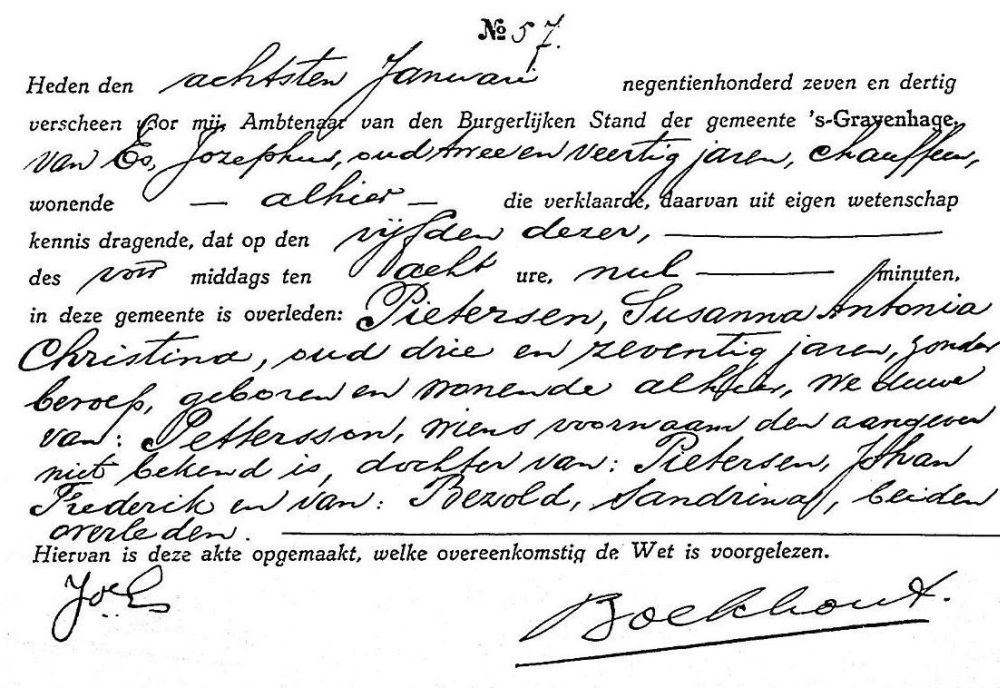 № 57.
Heden den achtsten Januari negentienhonderd zeven en dertig
verscheen voor mij, Ambtenaar van den Burgerlijken Stand der gemeente 's-Gravenhage,
van Es, Jozephus, oud twee en veertig jaren, chauffeur,
wonende — alhier — die verklaarde, daarvan uit eigen wetenschap
kennis dragende, dat op den vijfden dezer, —
des voor middags ten acht ure, nul — minuten,
in deze gemeente is overleden: Pietersen, Susanna Antonia
Christina, oud drie en zeventig jaren, zonder
beroep, geboren en wonende alhier, weduwe
van: Pettersson, wiens voornaam den aangever
niet bekend is, dochter van: Pietersen, Johan
Frederik en van: Bezold, Sandrina, beiden
overleden. —
Hiervan is deze akte opgemaakt, welke overeenkomstig de Wet is voorgelezen.
Jos Es Boekhout.